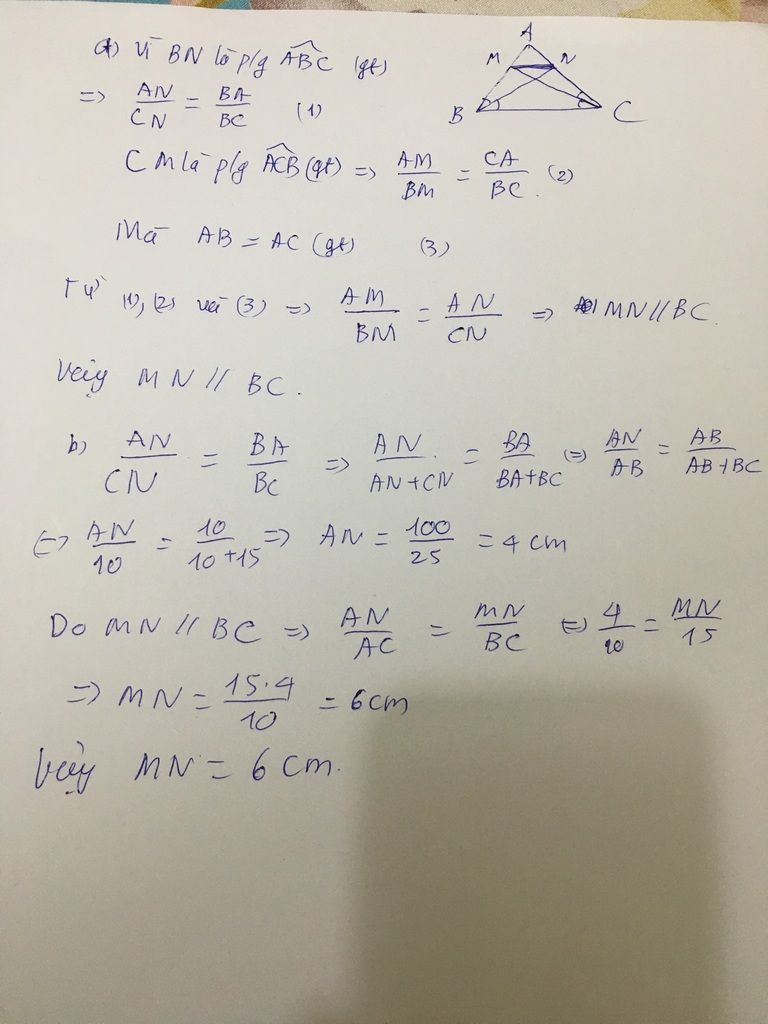 a) Vì BN là p/g \widehat{ABC} (gt)
=> AN/CN = BA/BC (1)
A
M N
B C
CM là p/g \widehat{ACB} (gt) => AM/BM = CA/BC. (2)
Mà AB = AC (gt) (3)
Từ (1), (2) và (3) => AM/BM = AN/CN => MN//BC.
Vậy MN // BC.
b) AN/CN = BA/BC => AN/AN+CN = BA/BA+BC (=) AN/AB = AB/AB+BC
(=> AN/10 = 10/10+15 => AN = 100/25 = 4 cm
Do MN // BC => AN/AC = MN/BC (=) 4/10 = MN/15
=> MN = 15.4/10 = 6cm
Vậy MN = 6 cm.